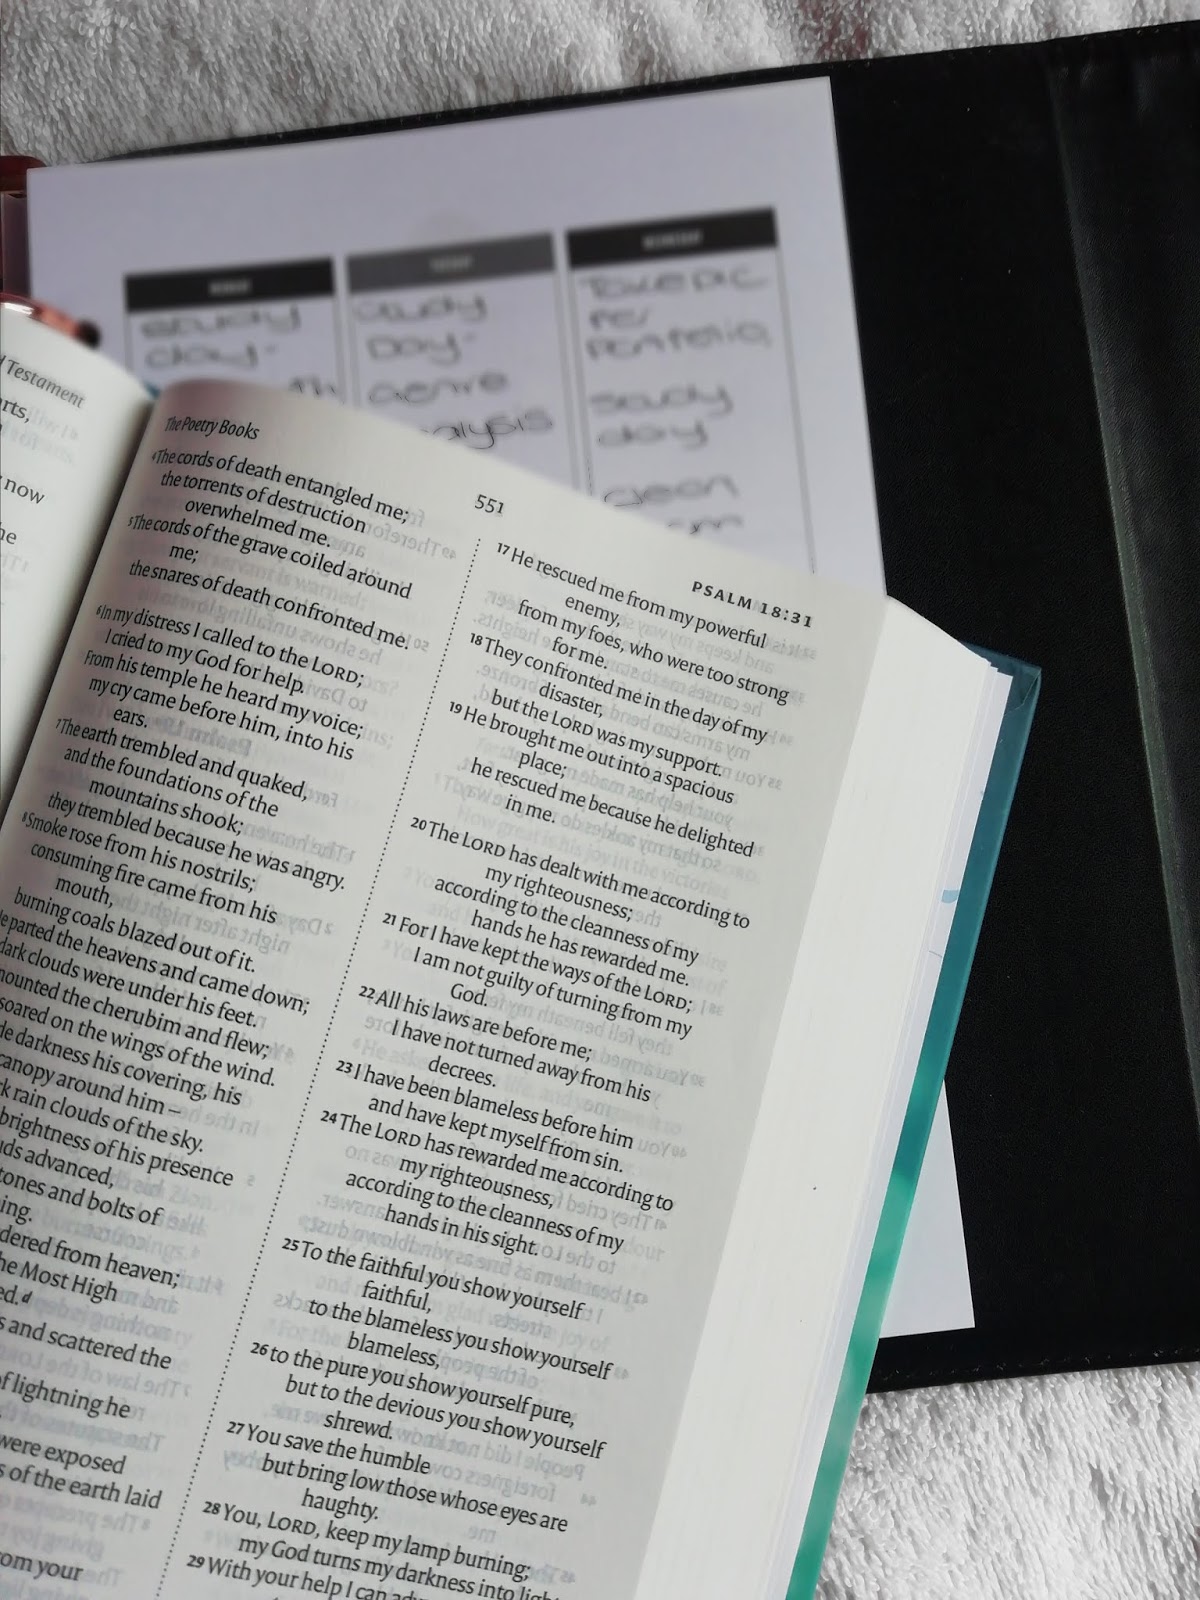 MONDAY
TUESDAY
WEDNESDAY
Study
day-
Study
Day-
Genre
alysis
Take pic
for
Portfolio
Study
day
clean
d Testament
arts,
now
he
The Poetry Books
551
PSALM 18:31
4 The cords of death entangled me;
the torrents of destruction
overwhelmed me.
5 The cords of the grave coiled around
me;
the snares of death confronted me.
6 In my distress I called to the LORD;
I cried to my God for help.
From his temple he heard my voice;
my cry came before him, into his
ears.
7 The earth trembled and quaked,
and the foundations of the
mountains shook;
they trembled because he was angry.
8 Smoke rose from his nostrils;
consuming fire came from his
mouth,
burning coals blazed out of it.
He parted the heavens and came down;
dark clouds were under his feet.
mounted the cherubim and flew;
soared on the wings of the wind.
de darkness his covering, his
canopy around him –
rk rain clouds of the sky.
brightness of his presence
uds advanced,
tones and bolts of
ning.
dered from heaven;
he Most High
ed. d
s and scattered the
of lightning he
were exposed
s of the earth laid
rom your
17 He rescued me from my powerful
enemy,
from my foes, who were too strong
for me.
18 They confronted me in the day of my
disaster,
but the LORD was my support.
19 He brought me out into a spacious
place;
he rescued me because he delighted
in me.
20 The LORD has dealt with me according to
my righteousness;
according to the cleanness of my
hands he has rewarded me.
21 For I have kept the ways of the LORD;
I am not guilty of turning from my
God.
22 All his laws are before me;
I have not turned away from his
decrees.
23 I have been blameless before him
and have kept myself from sin.
24 The LORD has rewarded me according to
my righteousness,
according to the cleanness of my
hands in his sight.
25 To the faithful you show yourself
faithful,
to the blameless you show yourself
blameless,
26 to the pure you show yourself pure,
but to the devious you show yourself
shrewd.
27 You save the humble
but bring low those whose eyes are
haughty.
28 You, LORD, keep my lamp burning;
my God turns my darkness into light
29 With your help I can adv